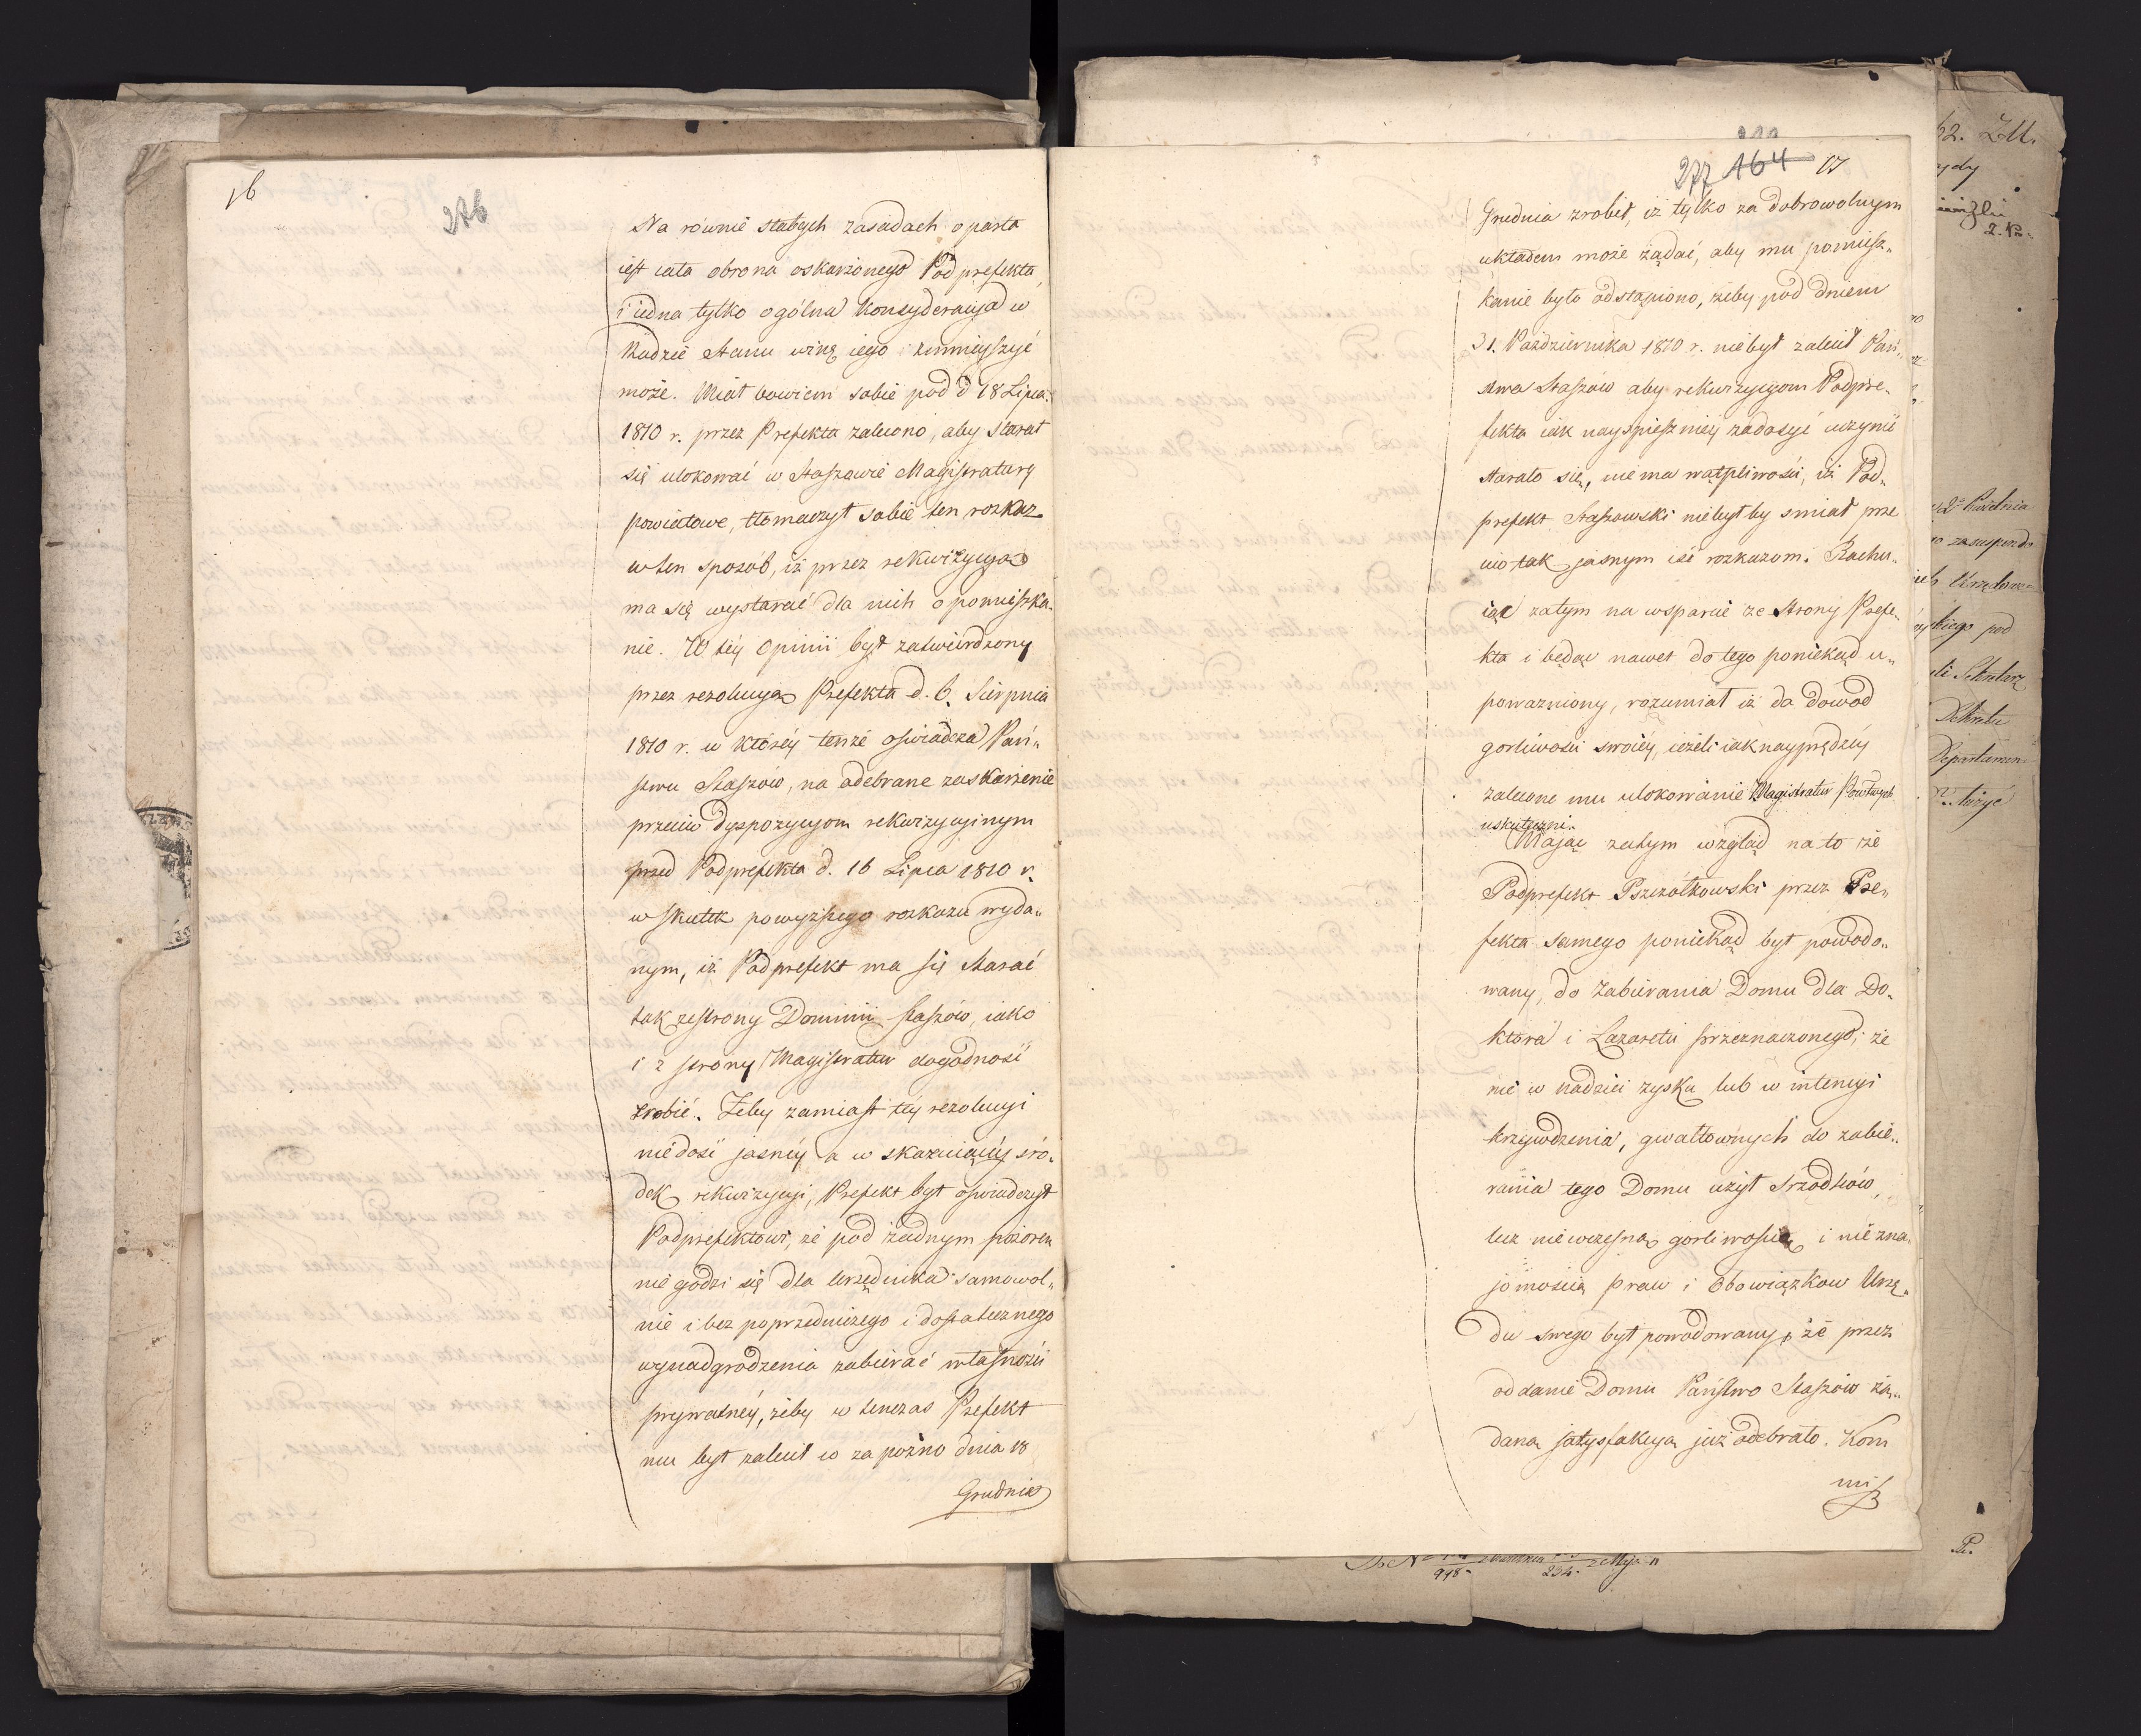 16
276
Na równie słabych zasadach oparta
iest cała obrona oskarżonego Podprefekta,
i iedna tylko ogólna konsyderacya w
Radzie Stanu winę iego zmnieyszyć
może. Miał bowiem sobie pod d 18 Lipca
1810 r. przez Prefekta zalecono, aby starał
się ulokować w Staszowie Magistratury
powiatowe, tłomaczył sobie ten rozkaz
w ten sposób, iż przez rekwizycyą
ma się wystarać dla nich o pomieszka-
nie. W téy Opinii był zatwierdzony
przez rezolucyą Prefekta d. 6. Sierpnia
1810 r. w któréy tenże oświadcza Pań„
stwu Staszów, na odebrane zaskarżenie
przeciw dyspozycyom rekwizycyinym
przed Podprefekta d. 16 Lipca 1810 r.
w skutek powyższego rozkazu wyda„
nym, iż Podprefekt ma się starać
tak ze strony Dominii Staszów, iako
i z strony Magistratur dogodność
zrobić. Żeby zamiast téy rezolucyi
niedość jasnéy a wskazuiącéy śro-
dek rekwizycyi, Prefekt był oświadczył
Podprefektowi, że pod żadnym pozorem
nie godzi się dla Urzędnika samowol„
nie i bez poprzedniczego i dostatecznego
wynadgrodzenia zabierać własności
prywatnéy, żeby w tenczas Prefekt
mu był zalecił co za poźno dnia 18
Grudnia
277 164 17
Grudnia zrobił, iż tylko za dobrowolnym
układem może żądać, aby mu pomiesz„
kanie było odstąpiono, żeby pod dniem
31. Października 1810 r. niebył zalecił Pań„
stwa Staszów aby rekwizycyom Podpre-
fekta iak nayspieszniéy zadosyć uczynić
starało się, nie ma wątpliwości, iż Pod„
prefekt Staszowski niebyłby smiał prze
ciw tak jasnym iść rozkazom. Rachu-
iąc zatym na wsparcie ze strony Prefe„
kta i będąc nawet do tego poniekąd u„
poważniony, rozumiał iż da dowod
gorliwości swoiéy, ieżeli iak nayprędzéy
zalecone mu ulokowanie Magistratur Powtwych
uskuteczni.
Mając zatym wzgląd na to że
Podprefekt Pszczółkowski przez Pre„
fekta samego poniekąd był powodo„
wany, do Zabierania Domu dla Do„
ktora i Lazaretu przeznaczonego; że
nie w nadziei zysku lub w intencyi
krzywdzenia, gwałtownych do zabie„
rania tego Domu użył srzodków,
lecz niewczesną gorliwością i niezna„
jomością praw i Obowiązkow Urzę„
du swego był powodowany, że przez
oddanie Domu Państwo Staszów żą„
daną satysfakcyą już odebrało. Kom
miss